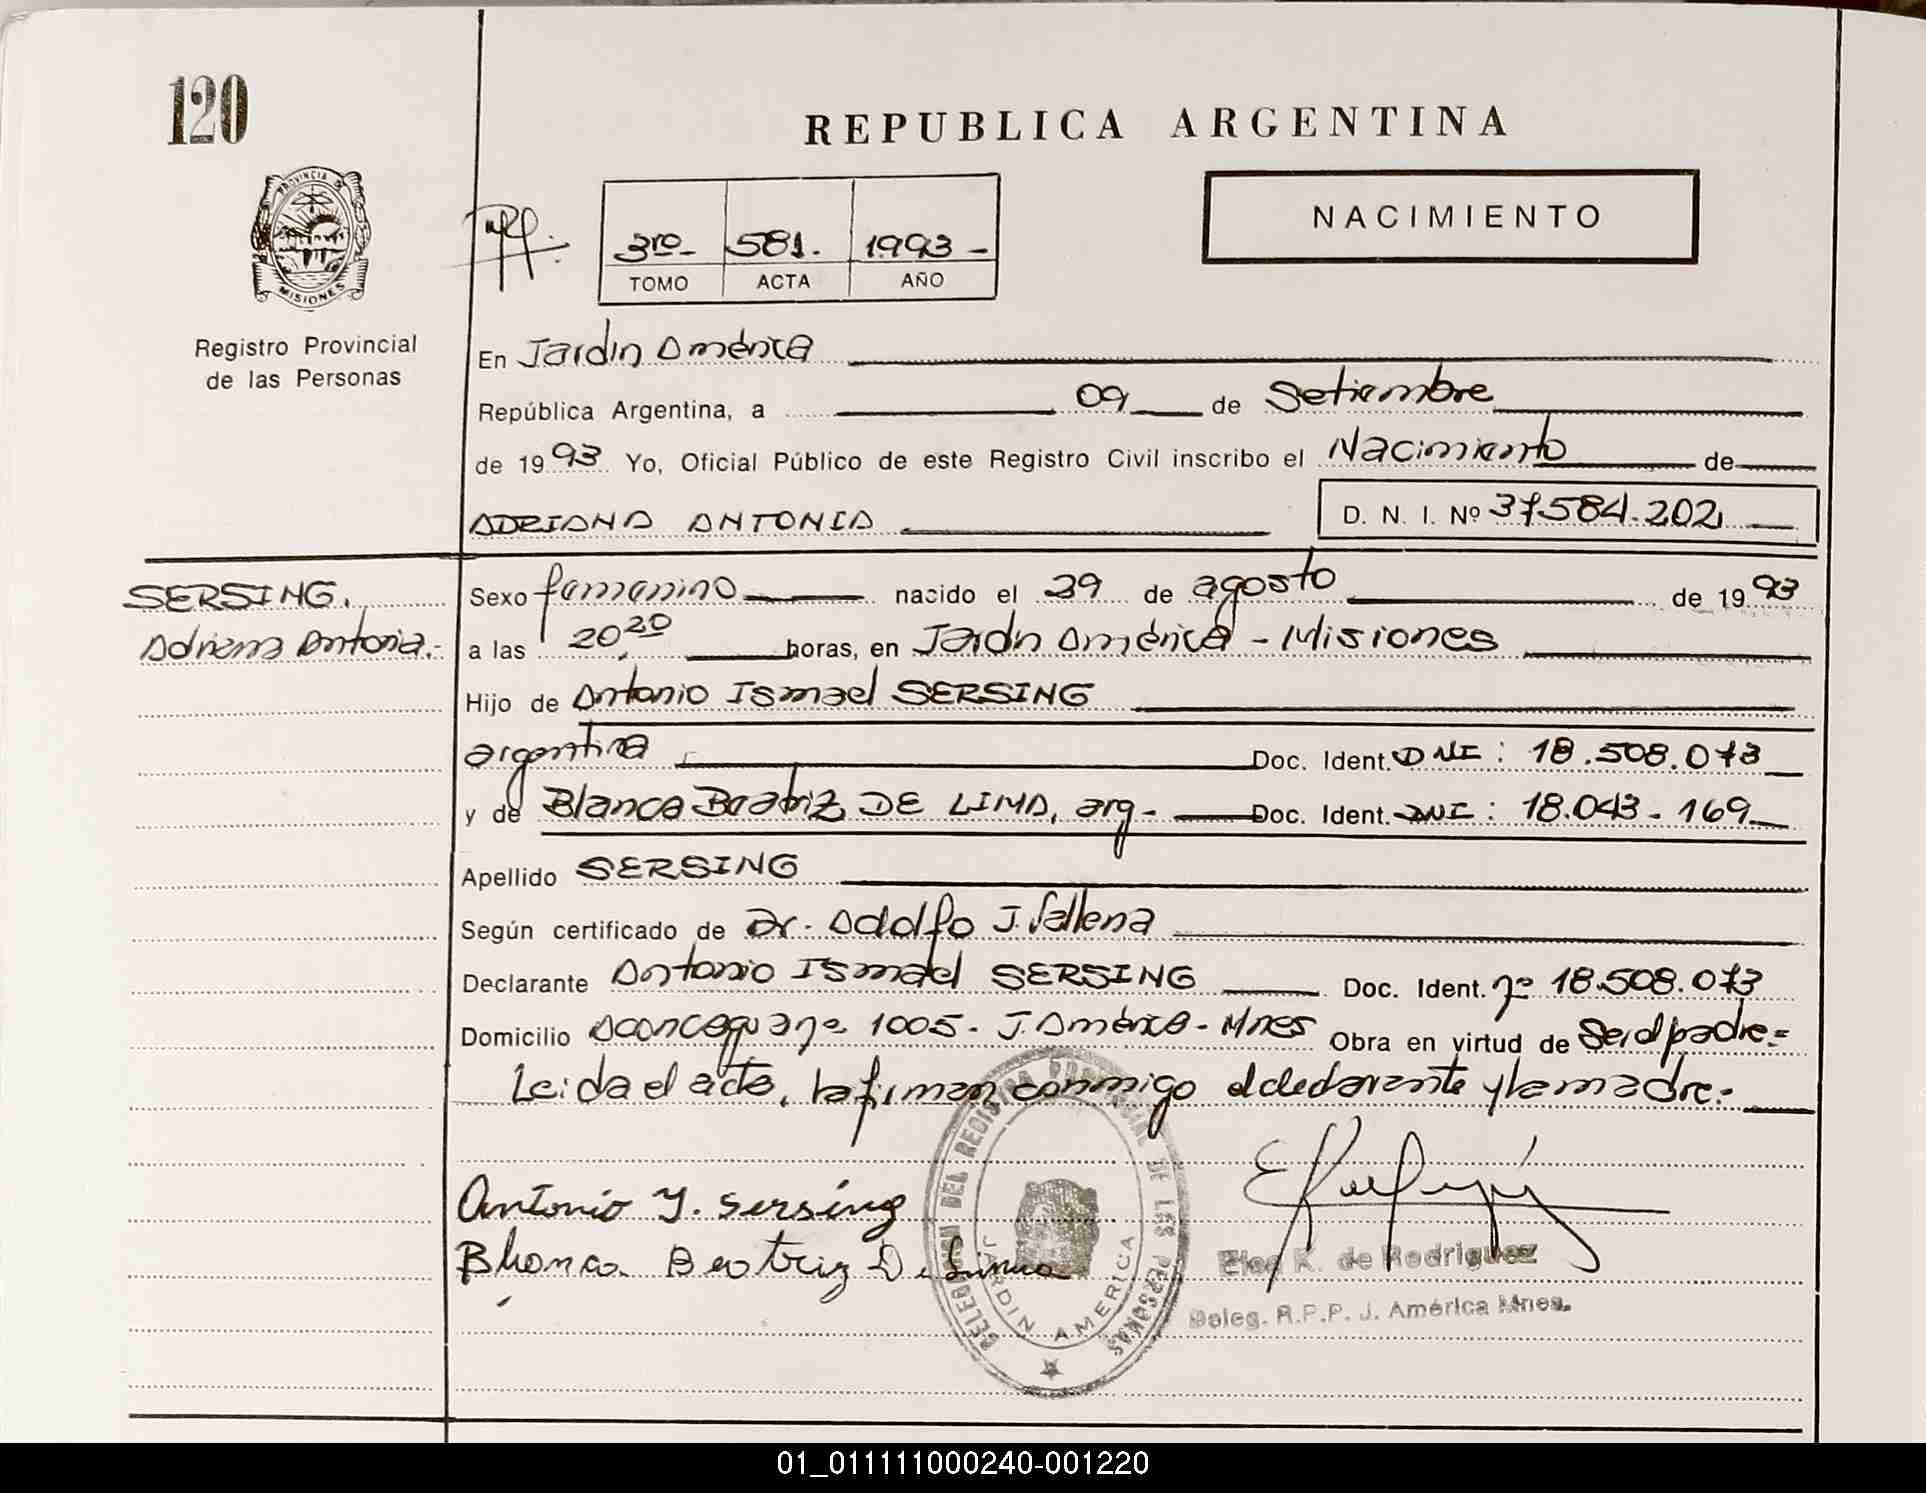 120
REPUBLICA ARGENTINA
PROVINCIA DE MISIONES
3ro- 581. 1993-
TOMO ACTA AÑO
NACIMIENTO
Registro Provincial
de las Personas
En Jardin América
República Argentina, a 09 de Setiembre
de 1993 Yo, Oficial Público de este Registro Civil inscribo el Nacimiento de
ADRIANA ANTONIA D. N. I. Nº 37584.202
SERSING.
Adriana Antonia.-
Sexo femenino nacido el 29 de agosto de 1993
a las 20,20 horas, en Jardn América - Misiones
Hijo de Antonio Ismael SERSING
argentina Doc. Ident. DNI: 18.508.073
y de Blanca Beatriz DE LIMA, arg- Doc. Ident. DNI: 18.043.169
Apellido SERSING
Según certificado de Dr. Adolfo J.
Declarante Antonio Ismael SERSING Doc. Ident. nº 18.508.073
Domicilio Aconcagua nº 1005- J. América - Mnes Obra en virtud de Ser el padre=
Leida el acta, la firman conmigo el declarante y la madre.-
Antonio Y. Sersing
Blanca Beatriz D. Lima
DELEGACION DEL REGISTRO PROVINCIAL DE LAS PERSONAS
JARDIN AMERICA
K. de Rodriguez
Deleg. R.P.P. J. América Mnes.
01_011111000240-001220